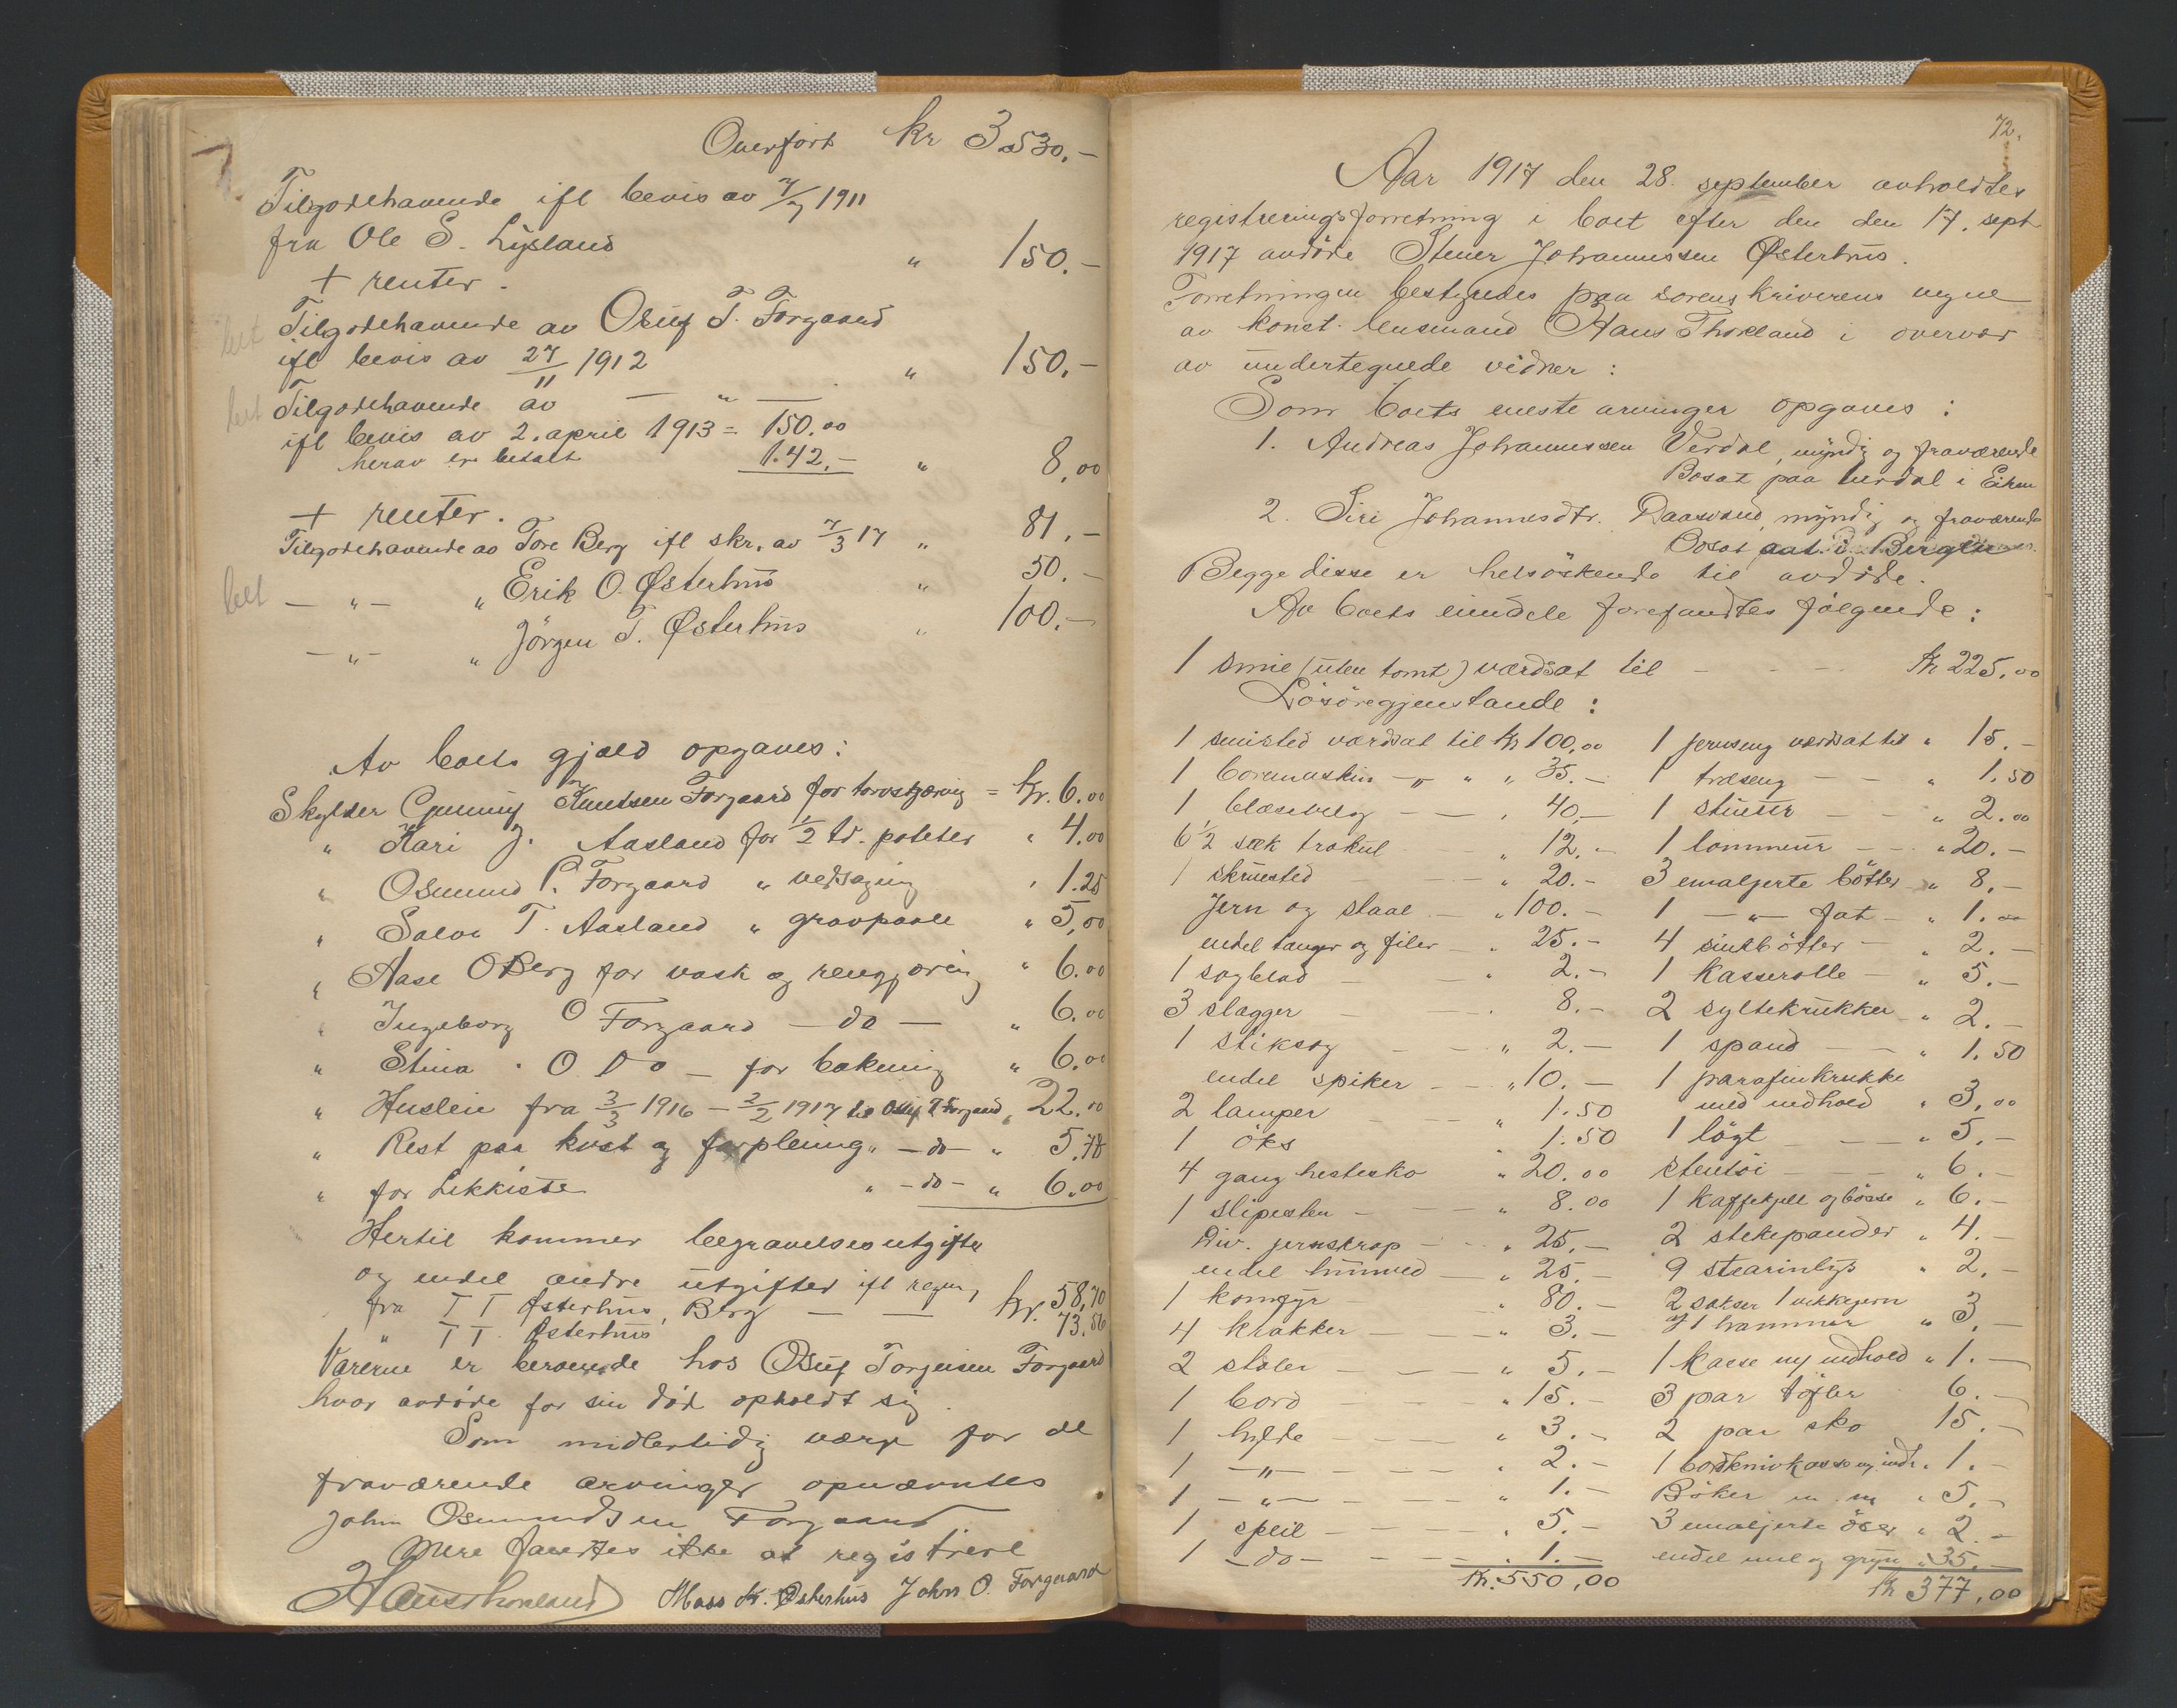 Overført kr 3530.-
Tilgodehavende ifl bevis av 7/7 1911
fra Ole S. Lysland " 150.-
+ renter.
bet Tilgodehavende av Osuf T. Forgaard
ifl bevis av 27/11 1912 " 150.-
bet Tilgodehavende av — " —
ifl bevis av 2. april 1913 = 150.00
herav er betalt 142.- " 8,00
+ renter.
Tilgodehavende av Tore Berg ifl skr. av 7/3 17 " 81.-
bet — " — " Erik O. Østerhus " 50.-
— " — " Jörgen T. Østerhus " 100.-
Av boets gjæld opgaves:
Skylder Gunnuf Knudsen Forgaard for torvskjæring = kr. 6.00
" Kari J. Aasland for 1/2 td. poteter " 4.00
" Osmund P. Forgaard " vedsaging " 1.25
" Salve T. Aasland " gravpaale " 5,00
" Aase O Berg for vask og rengjøring " 6.00
" Ingeborg O Forgaard — do — " 6.00
" Stina " O Do — for bakning " 6.00
" Husleie fra 3/3 1916 — 2/2 1917 til Osuf T Forgaard " 22.00
" Rest paa kost og forpleining " — do — " 5,78
" for Likkiste " — do — " 6.00
Hertil kommer begravelsesutgifter
og endel andre utgifter ifl regn,
fra T T Østerhus, Berg — — kr. 58,70
" T T. Østerhus 73.56
Varerne er beroende hos Osuf Torjussen Forgaard
hvor avdøde før sin död opholdt sig.
Som midlertidig værge for de
fraværende arvinger opnævntes
John Osmundsen Forgaard
Mere fandtes ikke at registrere
Hans Thorsland Mass K. Østerhus John O. Forgaard
72.
Aar 1917 den 28. september avholdtes
registreringsforretning i boet efter den den 17. sept
1917 avdöde Stener Johannessen Østerhus.
Forretningen bestyredes paa sorenskriverens vegne
av konst. lensmand Hans Thorsland i overvær
av undertegnede vidner:
Som boets eneste arvinger opgaves:
1. Andreas Johannessen Verdal, myndig og fraværende
Bosat paa Verdal i Eiken
2. Siri Johannesdtr. Raasvand, myndig og fraværende
Bosat i Bergen
Begge disse er helsöskende til avdöde.
Av boets eiendele forefandtes fölgende:
1 smie (uten tomt) værdsat til — — Kr 225.00
Lösöregjenstande:
1 smisted værdsat til Kr 100,00 1 jernseng værdsat til " 15.-
1 boremaskin — " " " 35.- 1 træseng — — " 1.50
1 blæsebelg — — " 40,- 1 stueur — — " 2.00
6 1/2 sæk trækul " 12.- 1 lommeur — — " 20.-
1 skruested — " 20.- 3 emaljerte bötter " 8.-
Jern og staal — " 100.- 1 — " — fat — " 1.00
endel tanger og filer — " 25.- 4 sinkbötter — " 2.-
1 sagblad — — " 2.- 1 kasserolle — " 5.-
3 slægger — — " 8.- 2 syltekrukker " 2.-
1 stiksag — — " 2.- 1 spand — — " 1.50
endel spiker — — " 10.- 1 parafinkrukke
2 lamper " 1.50 med indhold " 3,00
1 öks " 1.50 1 lögt — — " 5.-
4 gang hestesko " 20.00 stentöi — — " 6.-
1 slipesten — " 8.00 1 kaffekjel og bösse " 6.-
Div. jernskrap — " 25.- 2 stekepander " 4.-
endel brænved — " 25.- 9 stearinlys " 2.-
1 komfyr " 80.- 2 sakser 1 vekkejern
4 krakker — — " 3.- og 1 hammer " 3.-
2 stoler — — " 5.- 1 kasse m/ indhold " 1.-
1 bord — — " 15.- 3 par töfler 6.-
1 hylde — — " 3.- 2 par sko 15.-
1 — " — " 2.- 1 bordknivkasse m/ indh. " 1.-
1 — " — — " 1.- Böker m. m " 5.-
1 speil — — " 5.- 3 emaljerte öser " 2.-
1 — do — — " 1.- endel mel og gryn " 35.-
Kr. 550,00 Kr 377,00